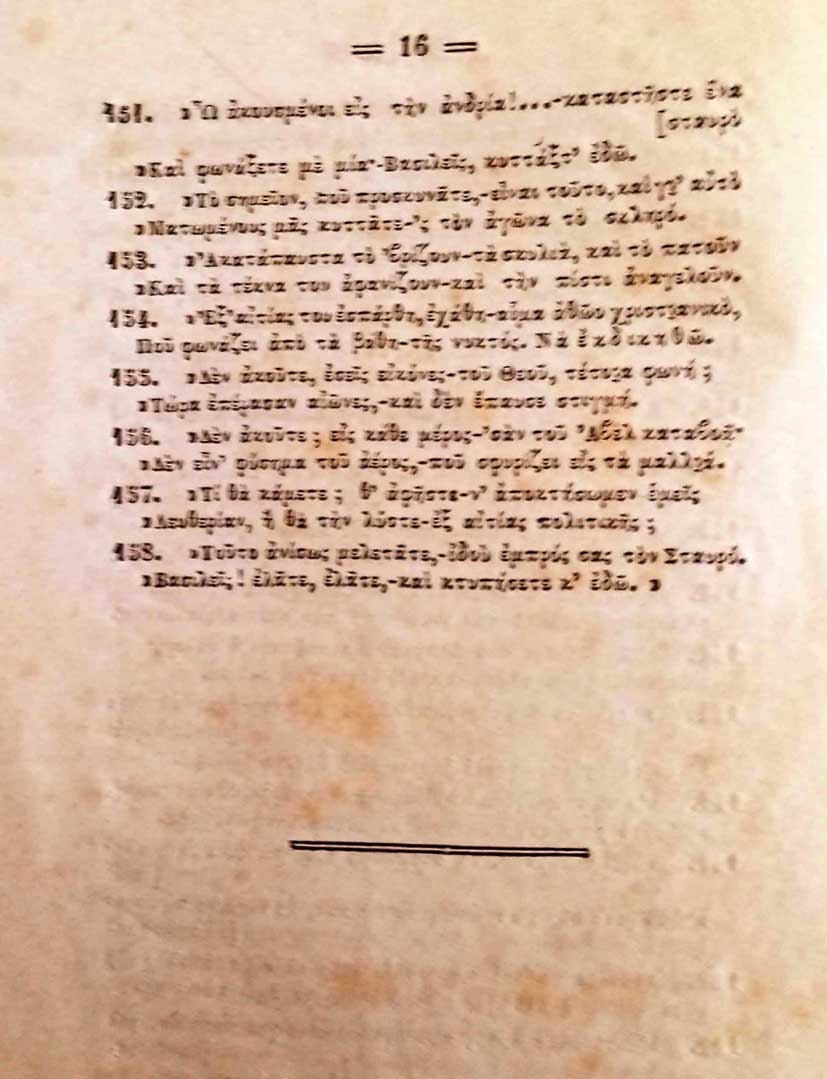 = 16 =
151. »Ὦ ἀκουσμένοι εἰς τὴν ἀνδρία!...-καταστῆστε ἕνα
[σταυρὸ
»Καὶ φωνάξετε μὲ μία·-Βασιλεῖς, κυττάξτ’ ἐδῶ.
152. »Τὸ σημεῖον, ποῦ προσκυνᾶτε,-εἶναι τοῦτο, καὶ γι’ αὐτὸ
»Ματωμένους μᾶς κυττᾶτε-’ς τὸν ἀγῶνα τὸ σκληρό.
153. »’Ακατάπαυστα τὸ ὑβρίζουν-τὰ σκυλιὰ, καὶ τὸ πατοῦν
»Καὶ τὰ τέκνα του ἀφανίζουν-καὶ τὴν πίστι ἀναγελοῦν.
154. »’Εξ’ αἰτίας του ἐσπάρθη, ἐχάθη-αἷμα ἀθῶο χριστιανικὸ,
Ποῦ φωνάζει ἀπὸ τὰ βάθη-τῆς νυκτός. Νὰ ἐκδικηθῶ.
155. »Δὲν ἀκοῦτε, ἐσεῖς εἰκόνες-τοῦ Θεοῦ, τέτοια φωνή ;
»Τώρα ἐπέρασαν αἰῶνες,-καὶ δὲν ἔπαυσε στιγμή.
156. »Δὲν ἀκοῦτε ; εἰς κάθε μέρος-’σὰν τοῦ ’Αβελ καταβοᾶ·
»Δὲν εἶν’ φύσημα τοῦ ἀέρος,-ποῦ σφυρίζει εἰς τὰ μαλλιά.
157. »Τί θὰ κάμετε ; θ’ ἀφῆστε-ν’ ἀποκτήσωμεν ἐμεῖς
»Λευθερίαν, ἢ θὰ τὴν λύστε-ἐξ αἰτίας πολιτικῆς ;
158. »Τοῦτο ἀνίσως μελετᾶτε,-ἰδοὺ ἐμπρός σας τὸν Σταυρό.
»Βασιλεῖς! ἐλᾶτε, ἐλᾶτε,-καὶ κτυπήσετε κ’ ἐδῶ. »